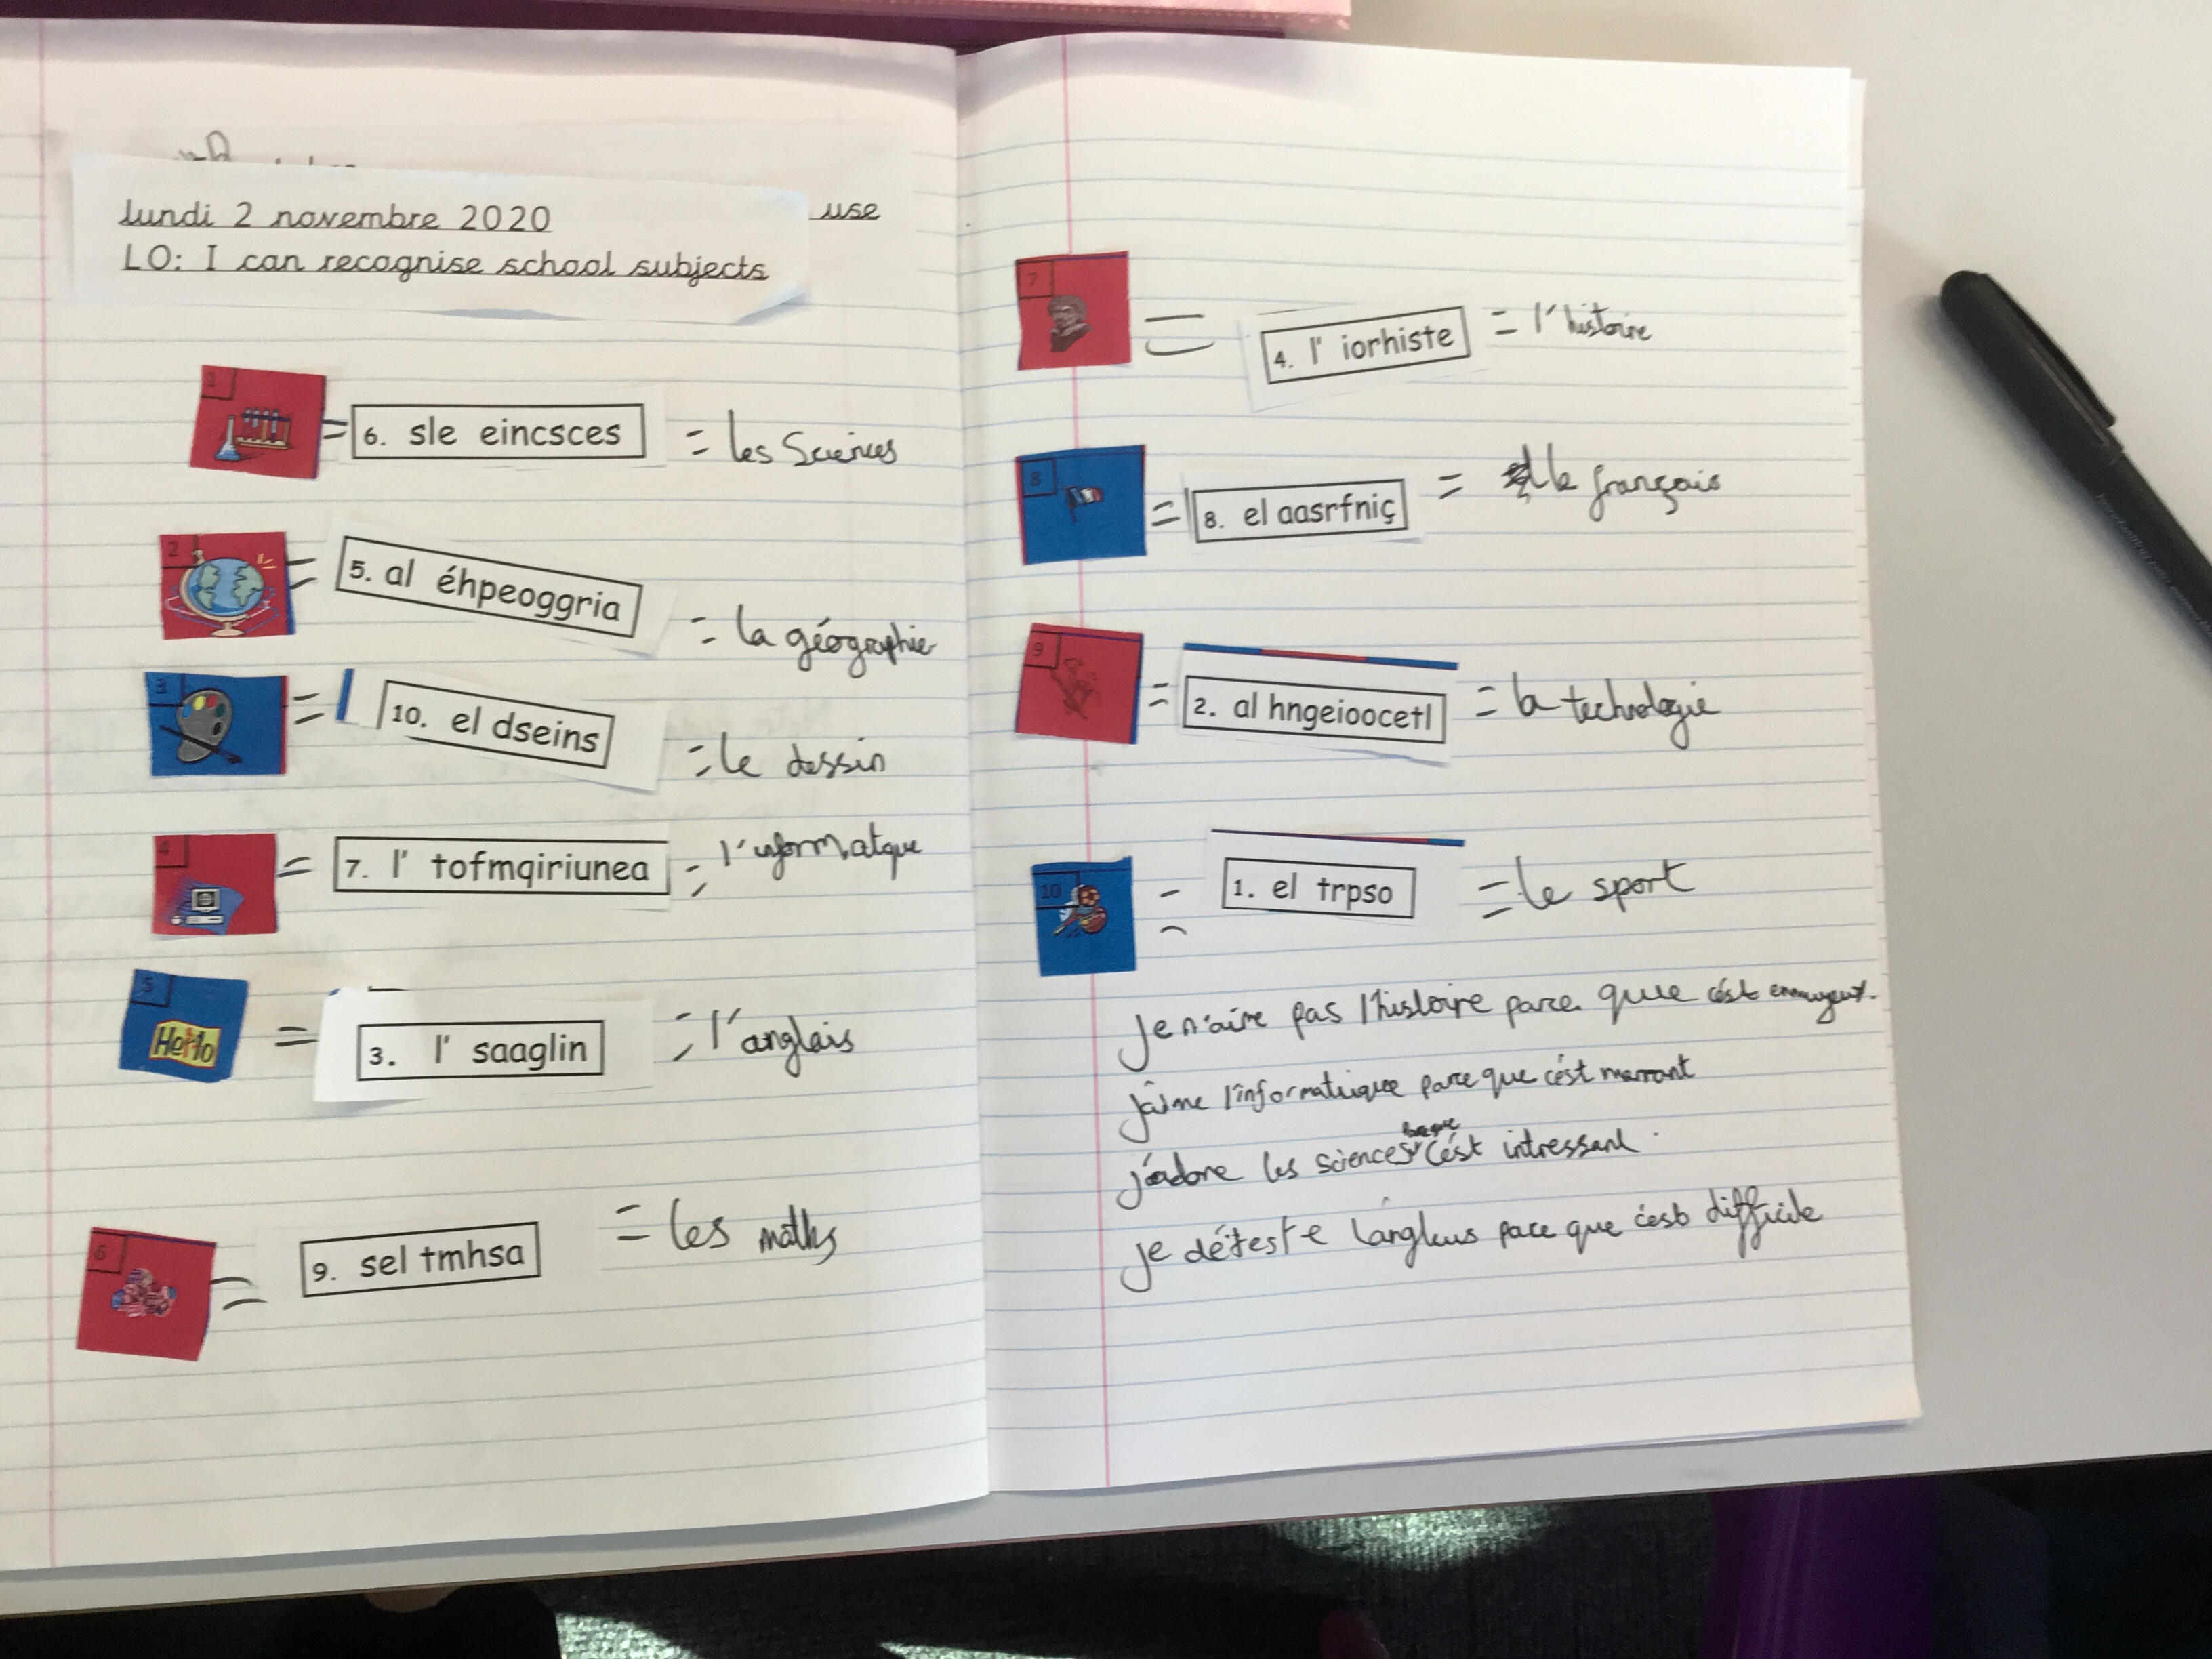 use
lundi 2 novembre 2020
LO: I can recognise school subjects
1
= 6. sle eincsces = les Sciences
2
= 5. al éhpeoggria = la géographie
3
= 10. el dseins = le dessin
4
= 7. l' tofmqiriunea = l'informatque
5
Hello
= 3. l' saaglin = l'anglais
6
= 9. sel tmhsa = les maths
7
= 4. l' iorhiste = l'histoire
8
= 8. el aasrfniç = le français
9
= 2. al hngeioocetl = la technologie
10
= 1. el trpso = le sport
Je n'aime pas l'histoire parce que c'est
j'aime l'informatique parce que c'ést marrant
j'adore les sciences c'ést intressant.
je déteste pace que c'est difficile